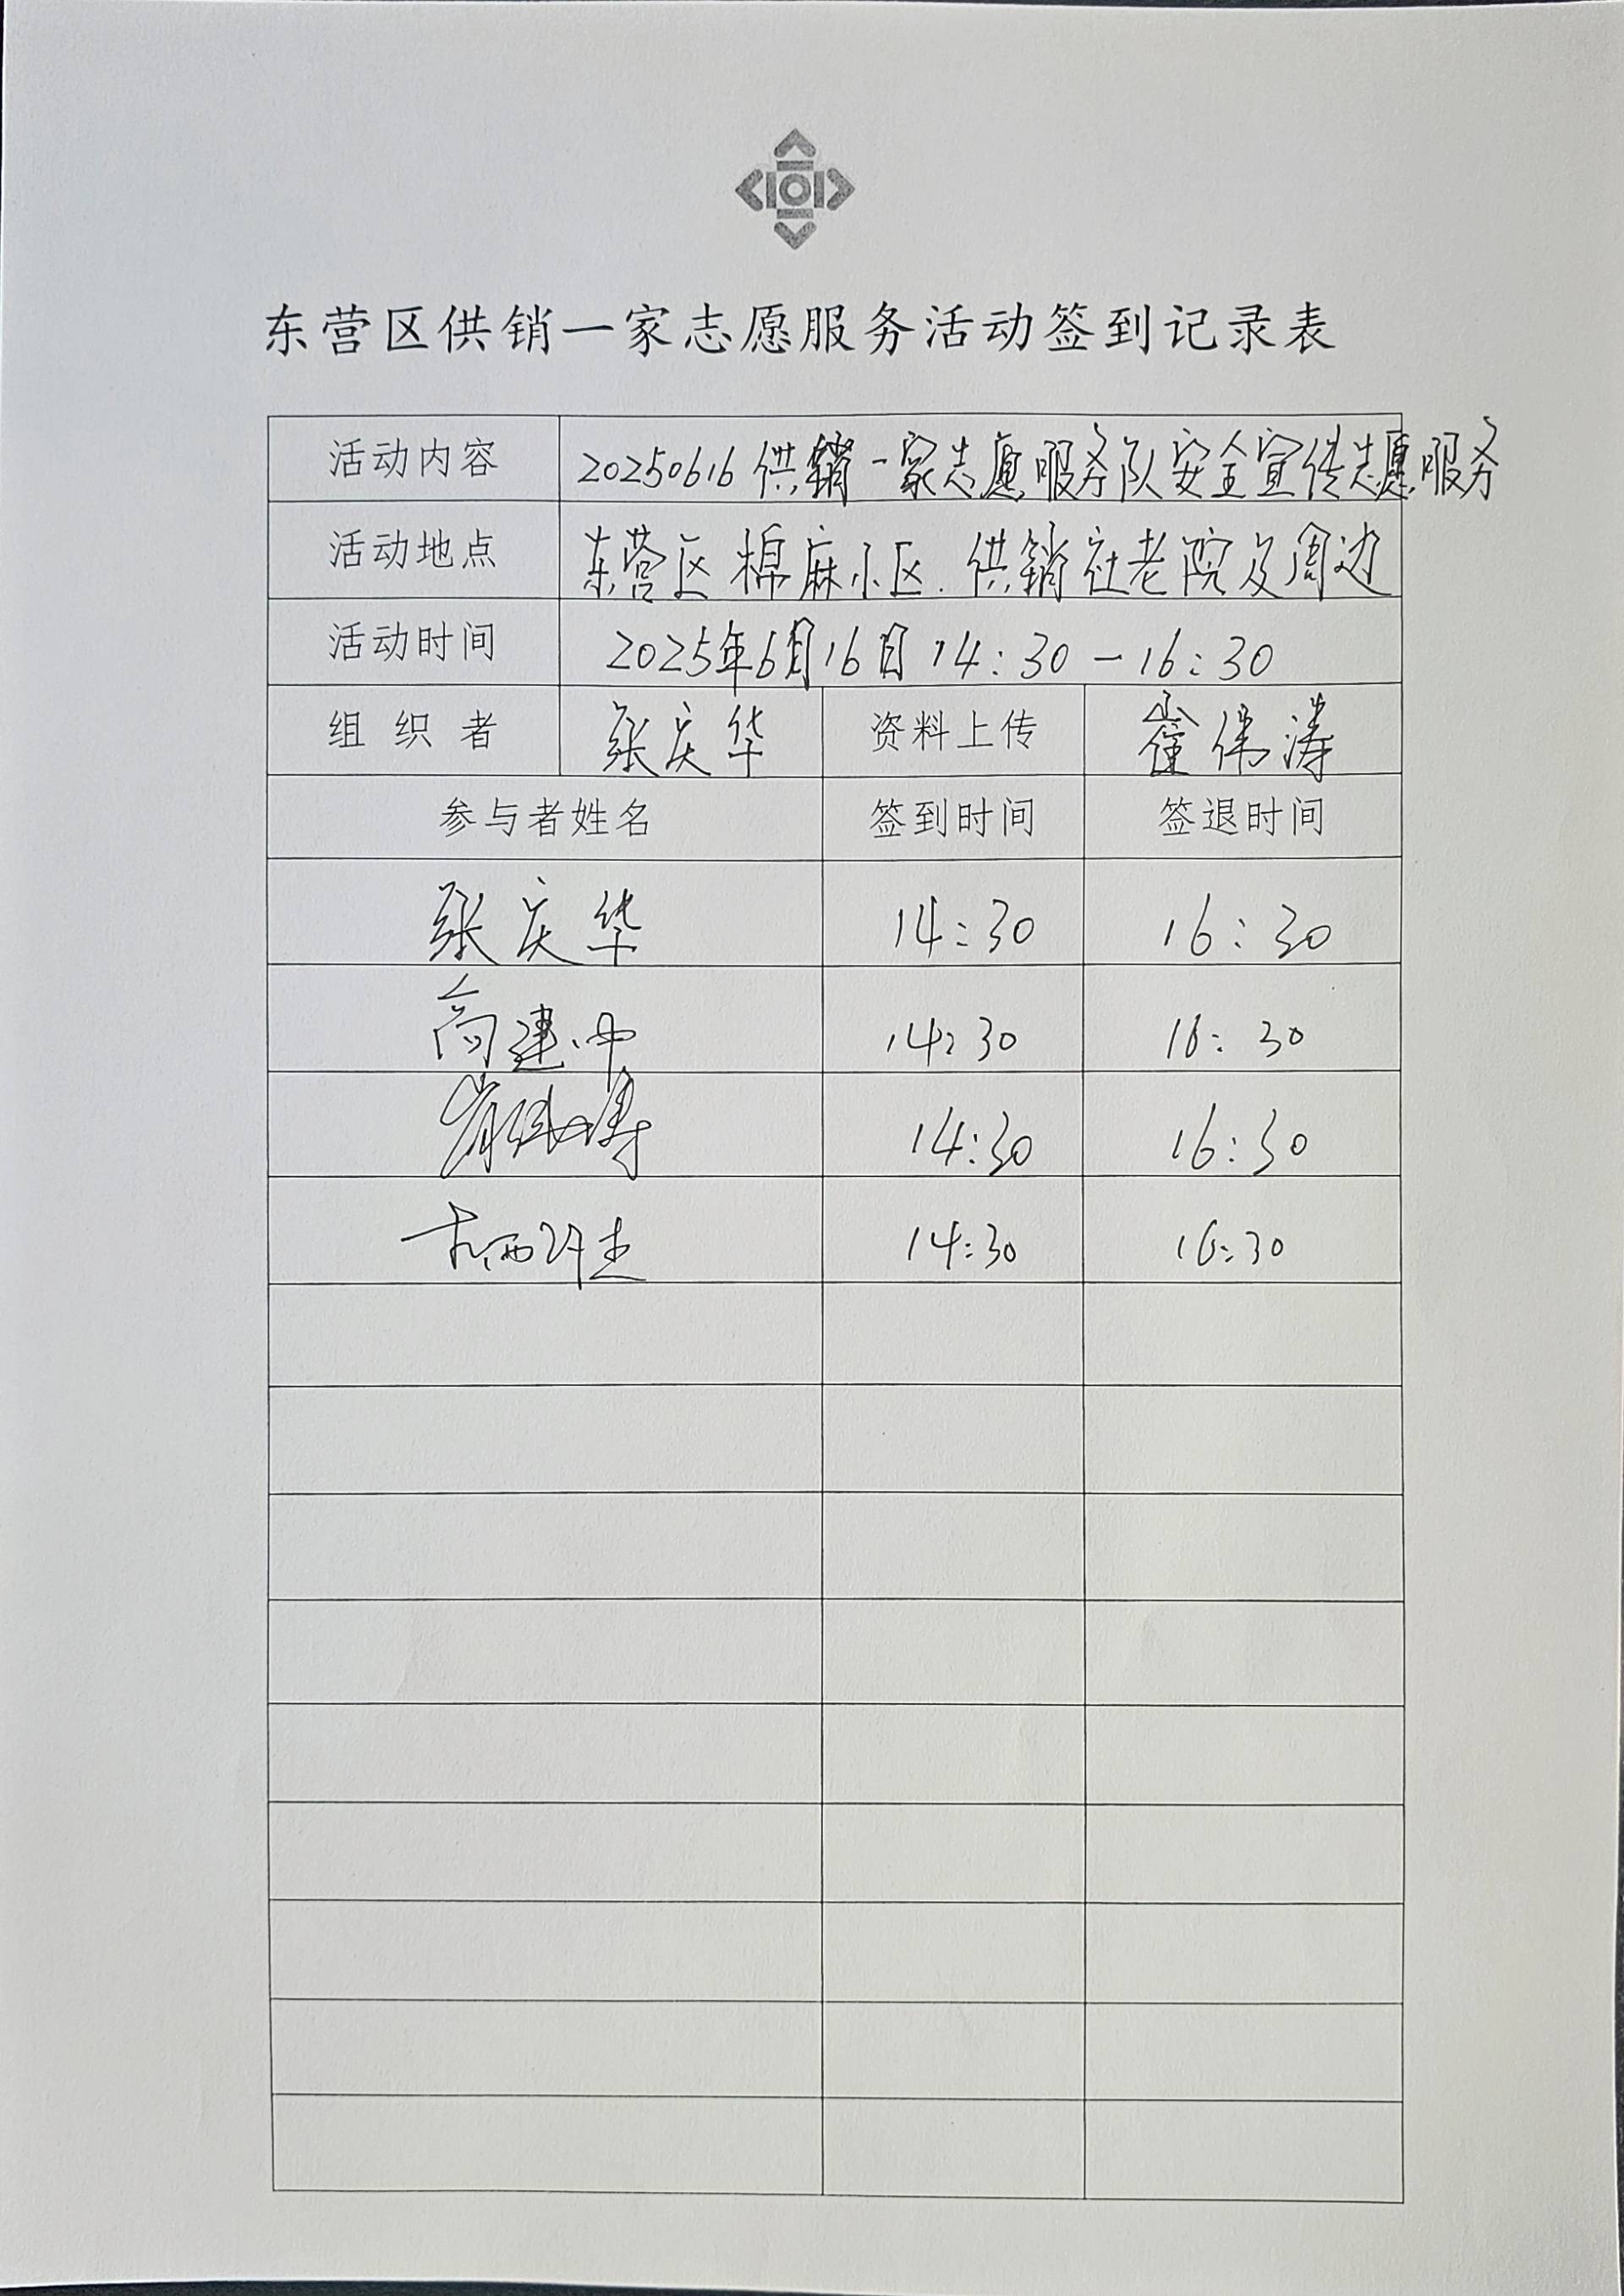 东营区供销一家志愿服务活动签到记录表
活动内容 20250616供销一家志愿服务队安全宣传志愿服务
活动地点 东营区棉麻小区.供销社老院及周边
活动时间 2025年6月16日14:30-16:30
组织者 张庆华 资料上传 崔伟涛
参与者姓名 签到时间 签退时间
张庆华 14:30 16:30
高建中 14:30 16:30
崔伟涛 14:30 16:30
14:30 16:30